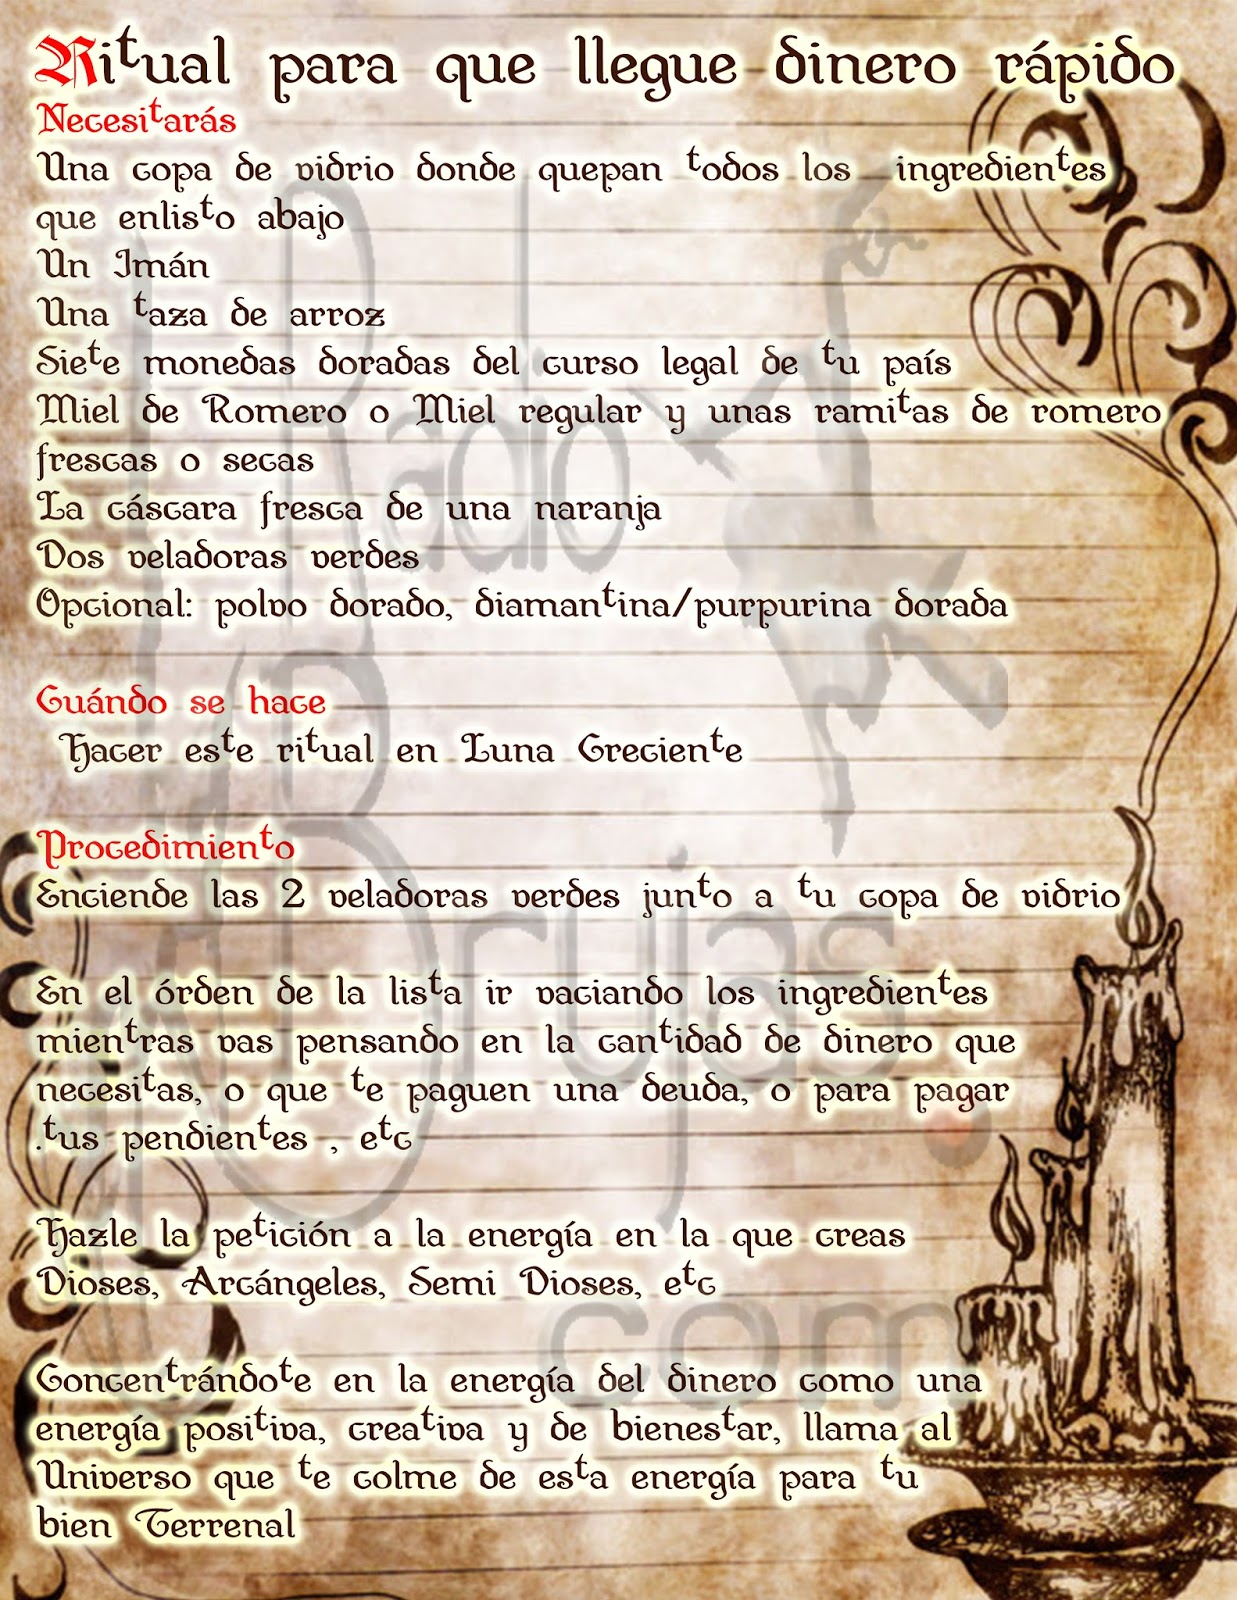 Ritual para que llegue dinero rápido
Necesitarás
Una copa de vidrio donde quepan todos los ingredientes
que enlisto abajo
Un Imán
Una taza de arroz
Siete monedas doradas del curso legal de tu país
Miel de Romero o Miel regular y unas ramitas de romero
frescas o secas
La cáscara fresca de una naranja
Dos veladoras verdes
Opcional: polvo dorado, diamantina/purpurina dorada
Cuándo se hace
Hacer este ritual en Luna Creciente
Procedimiento
Enciende las 2 veladoras verdes junto a tu copa de vidrio
En el órden de la lista ir vaciando los ingredientes
mientras vas pensando en la cantidad de dinero que
necesitas, o que te paguen una deuda, o para pagar
.tus pendientes , etc
Hazle la petición a la energía en la que creas
Dioses, Arcángeles, Semi Dioses, etc
Concentrándote en la energía del dinero como una
energía positiva, creativa y de bienestar, llama al
Universo que te colme de esta energía para tu
bien Terrenal
Radio
Brujas.
com